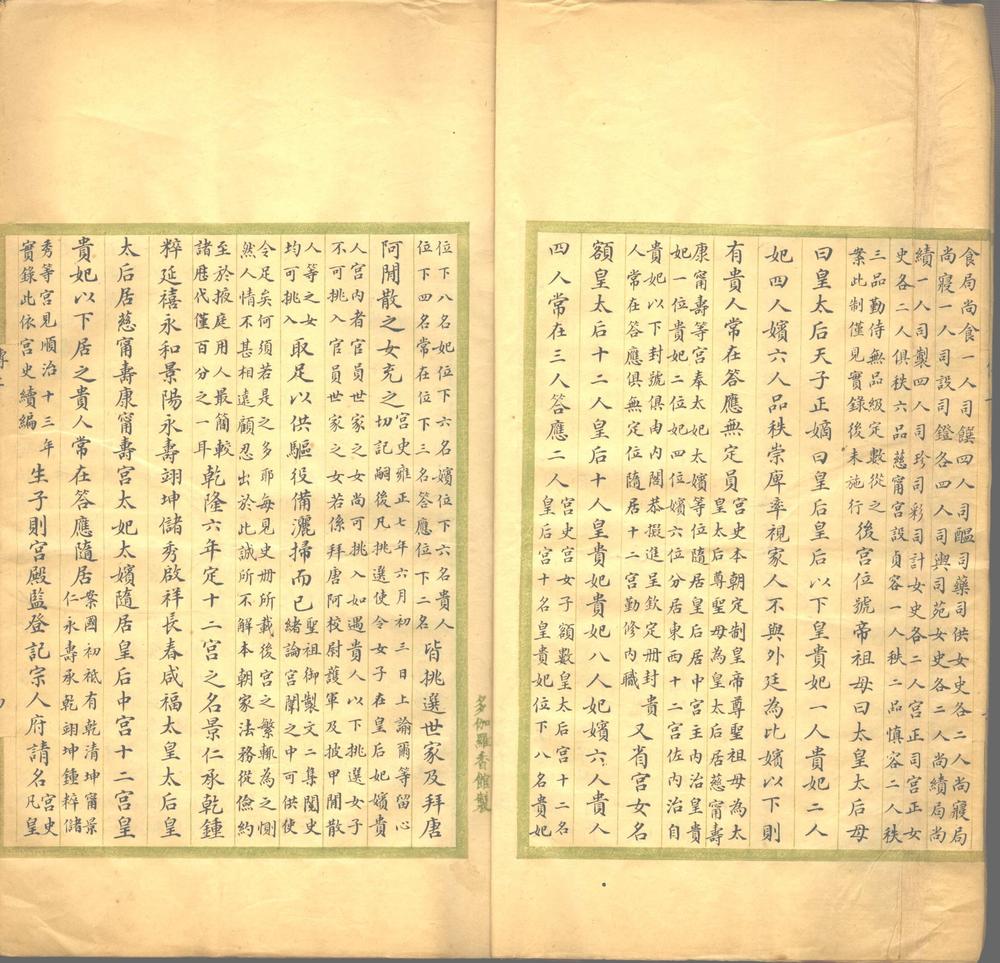 食局尚食一人司饌四人司醞司藥司供女史各二人尚寢局
尚寢一人司設司鐙各四人司輿司苑女史各二人尚績局尚
績一人司製四人司珍司彩司計女史各二人宮正司宮正女
史各二人俱秩六品慈甯宮設貞容一人秩二品慎容二人秩
三品勤侍無品級定數從之
案此制僅見實錄後未施行
後宮位號帝祖母曰太皇太后母
曰皇太后天子正嫡曰皇后皇后以下皇貴妃一人貴妃二人
妃四人嬪六人品秩崇庳率視家人不與外廷為比嬪以下則
有貴人常在答應無定員
宮史本朝定制皇帝尊聖祖母為太
皇太后尊聖母為皇太后居慈甯壽
康甯壽等宮奉太妃太嬪等位隨居皇后居中宮主內治皇貴
妃一位貴妃二位妃四位嬪六位分居東西十二宮佐內治自
貴妃以下封號俱由內閣恭擬進呈欽定册封貴
人常在答應俱無定位隨居十二宮勤修內職
又省宮女名
額皇太后十二人皇后十人皇貴妃貴妃八人妃嬪六人貴人
四人常在三人答應二人
宮史宮女子額數皇太后宮十二名
皇后宮十名皇貴妃位下八名貴妃
位下八名妃位下六名嬪位下六名貴人
位下四名常在位下三名答應位下二名
皆挑選世家及拜唐
阿閒散之女充之
宮史雍正七年六月初三日上諭爾等留心
切記嗣後凡挑選使令女子在皇后妃嬪貴
人宮內者官員世家之女尚可挑入如遇貴人以下挑選女子
不可挑入官員世家之女若係拜唐阿校尉護軍及披甲閒散
人等之女
均可挑入
取足以供驅役備灑掃而已
聖祖御製文二集閱史
緒論宮闈之中可供使
令足矣何須若是之多耶每見史册所載後宮之繁輒為之惻
然人情不甚相遠顧忍出於此誠所不解本朝家法務從儉約
至於掖庭用人最簡較
諸歷代僅百分之一耳
乾隆六年定十二宮之名景仁承乾鍾
粹延禧永和景陽永壽翊坤儲秀啟祥長春咸福太皇太后皇
太后居慈甯壽康甯壽宮太妃太嬪隨居皇后中宮十二宮皇
貴妃以下居之貴人常在答應隨居
案國初祗有乾清坤甯景
仁永壽承乾翊坤鍾粹儲
秀等宮見順治十三年
實錄此依宮史續編
生子則宮殿監登記宗人府請名
宮史
凡皇
多伽羅香館製